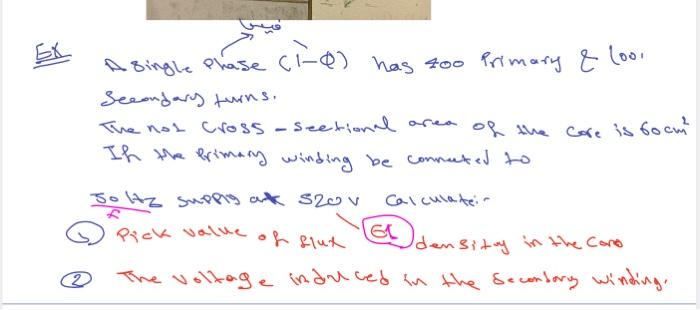 فيض
EX A Single Phase (1-Φ) has 400 Primary & 1001
Secondary turns.
The not Cross-sectional area of the core is 60 cm²
If the Primary winding be connected to
50 Hz supply at 520 V Calculate:-
f
① Pick value of flux density in the Core
E1
② The Voltage induced in the Secondary winding.